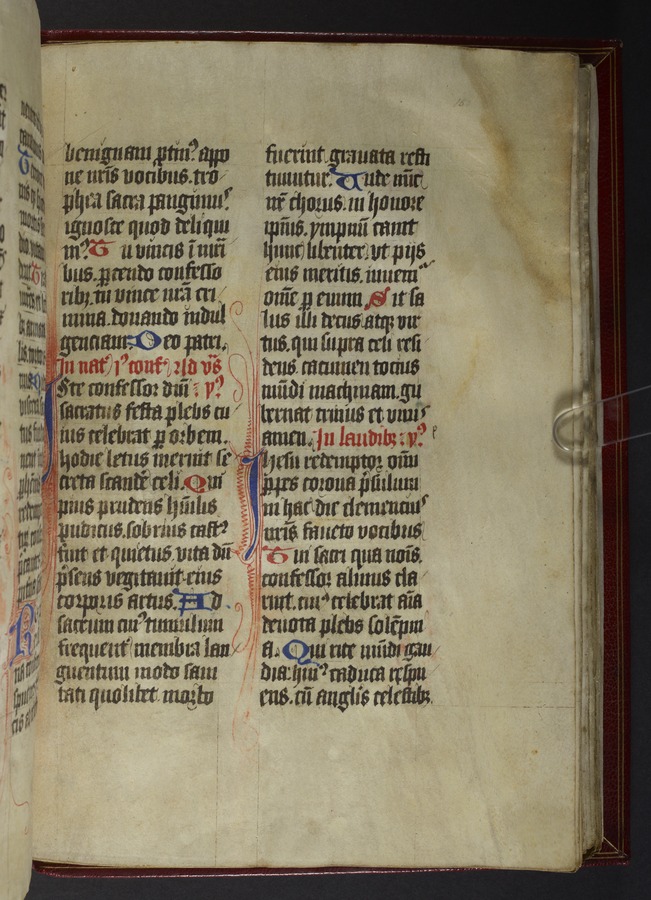 benignam ptin᷒ appo
ne uris vocibus. tro
phea sacra pangimus
ignosce quod deliqui
m᷒ Tu vincis i mri
bus. pcendo confesso
ribz. tu vince nra cri
mina. donando indul
genciam. Deo patri.
In nat i᷒ conf ad vs
Iste confessor dni : y᷒
sacratus festa plebs cu
ius celebrat p orbem.
hodie letus meruit se
creta scande celi. Qui
pius prudens humilis
pudicus. sobrius cast᷒
fuit et quietus vita dū
psens vegitauit eius
corporis artus. Ad
sacrum cui᷒ tumulum
frequent membra lan
guentum modo sani
tati quolibet morbo
fuerint grauata resti
tuuntur. Unde nūc
nr chorus. in honore
ipius. ympnū canit
hunc libenter. vt pijs
eius meritis. iuuem᷒
ome p euum. Sit sa
lus illi decus atqz vir
tus. qui supra celi resi
dens cacumen tocius
mūdi machinam. gu
bernat trinus et unus
amen. In laudibz : y᷒
Ihesu redemptor omū
ppes corona psulum
in hac die clemencius
uris faueto vocibus
Tui sacri qua nois.
confessor almus cla
ruit. cui᷒ celebrat aīa
deuota plebs solēpni
a. Qui rite mūdi gau
dia. hui᷒ caduca respu
ens. cū anglis celestibz